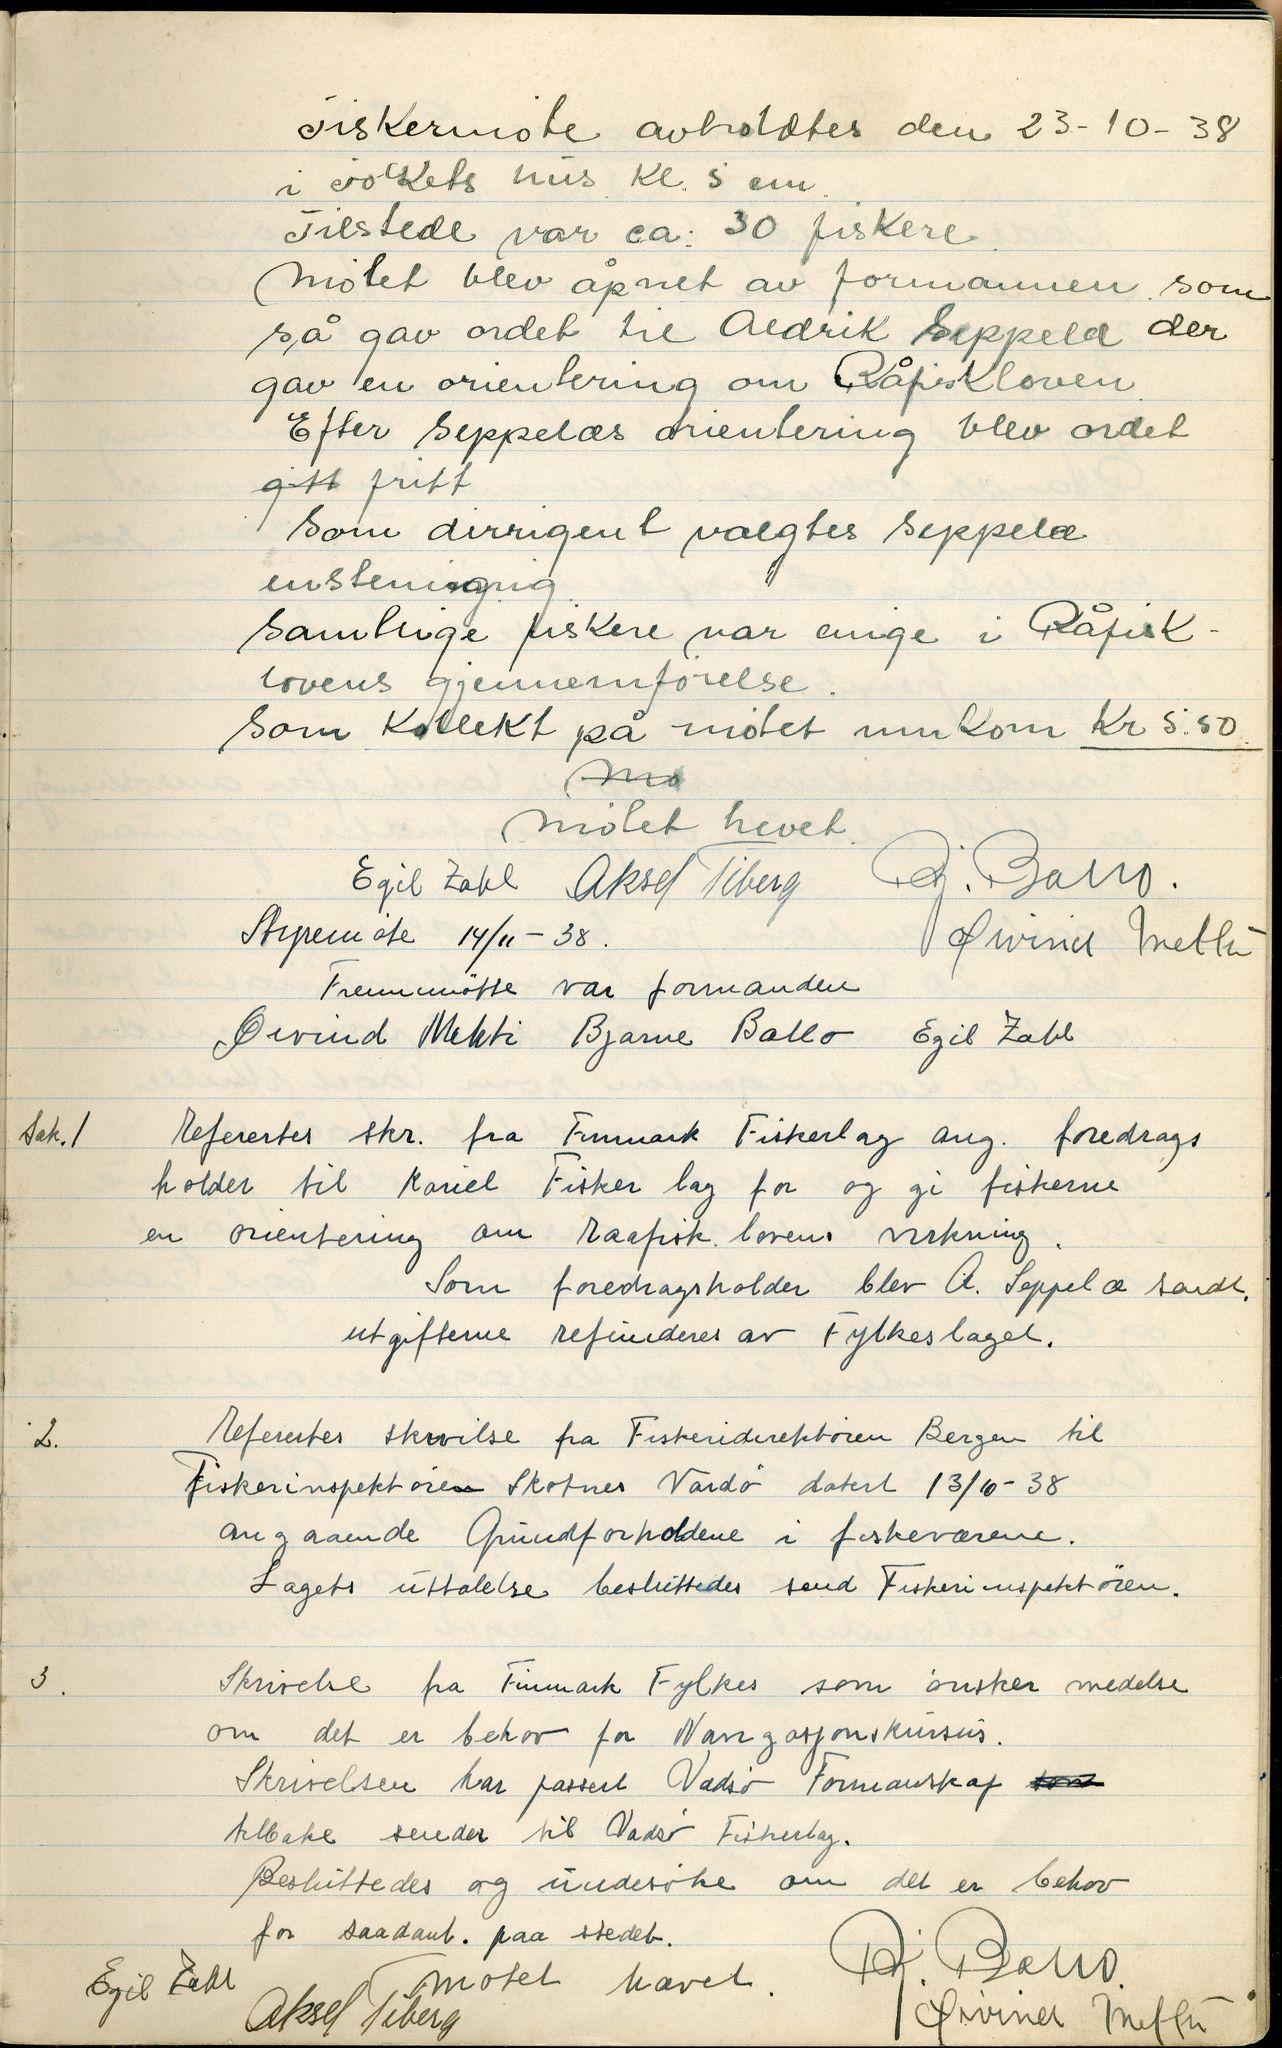 Fiskermöte avholdtes den 23-10-38
i Folkets hus kl. 5 em.
Tilstede var ca. 30 fiskere
Mötet blev åpnet av formannen som
så gav ordet til Aldrik Seppelæ der
gav en orientering om Råfiskloven
Efter Seppelæs orientering blev ordet
gitt fritt
Som dirrigent valgtes Seppelæ
enstemig
Samtlige fiskere var enige i Råfisk-
lovens gjennemförelse.
Som Kollekt på mötet innkom Kr 5.50.
Mö
Mötet hevet.
Egil Zahl Aksel Tiberg Bj. Ballo.
Styremöte 14/11-38. Øivind Mettи
Fremmötte var formanden
Øivind Mekti Bjarne Ballo Egil Zahl
Sak. 1 Referertes skr. fra Finmark Fiskerlag ang. foredrags
holder til Kariel Fisker lag for og gi fiskerne
en orientering om Raafisk lovens virkning.
Som foredragsholder blev A. Seppelæ sendt.
utgifterne refunderes av Fylkeslaget.
2. Referertes skrivilse fra Fiskeridirektören Bergen til
Fiskerinspektören Skotnes Vardö datert 13/10-38
angaaende Grundforholdene i fiskeværene.
Lagets uttalelse besluttedes send Fiskerinspektören.
3. Skrivelse fra Finmark Fylkes som önsker medelse
om det er behov for Navigasjonskursus.
Skrivelsen har passert Vadsö Formanskap som
tilbake sender til Vadsö Fiskerlag.
Besluttedes og undersöke om det er behov
for saadant. paa stedet.
Egil Zahl Mötet hævet. Bj. Ballo.
Aksel Tiberg Øivind